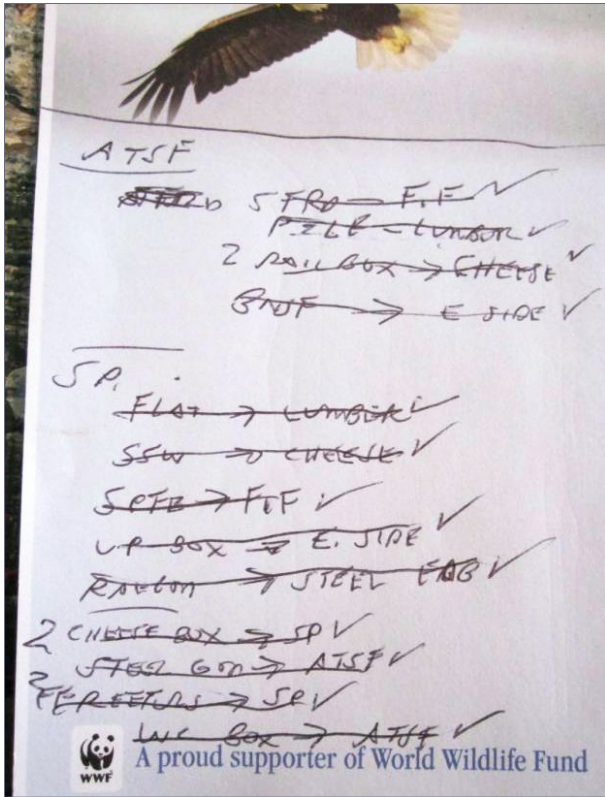 ATSF
5 FRD - F.F ✓
PILE - LUMBER ✓
2 RAIL BOX → CHEESE ✓
BNSF → E SIDE ✓
SP.
FLAT → LUMBER ✓
SSW → CHEESE ✓
SPFE → FEF ✓
UP BOX → E. SIDE ✓
→ STEEL FAB ✓
2 CHEESE BOX → SP ✓
STEEL GON → ATSF ✓
2 → SP ✓
BOX → ATSF ✓
WWF
A proud supporter of World Wildlife Fund